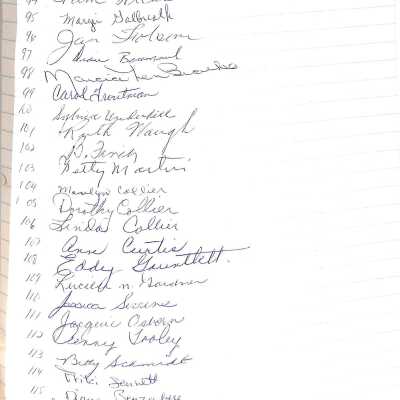 95 Margi Galbreath
96 Jan Folsom
97
98 Marcia
99 Carol Troutman
100 Underhill
101 Ruth Waugh
102 D. Finch
103 Betty Martin
104 Marilyn Collier
105 Dorothy Collier
106 Linda Collier
107 Ann Curtis
108 Eddy Gauntlett.
109 Lucille N. Gardner
110 Jessica
111 Jacquie Osborn
112 Penny Tooley
113 Betty Schmidt
114 Bennett
115